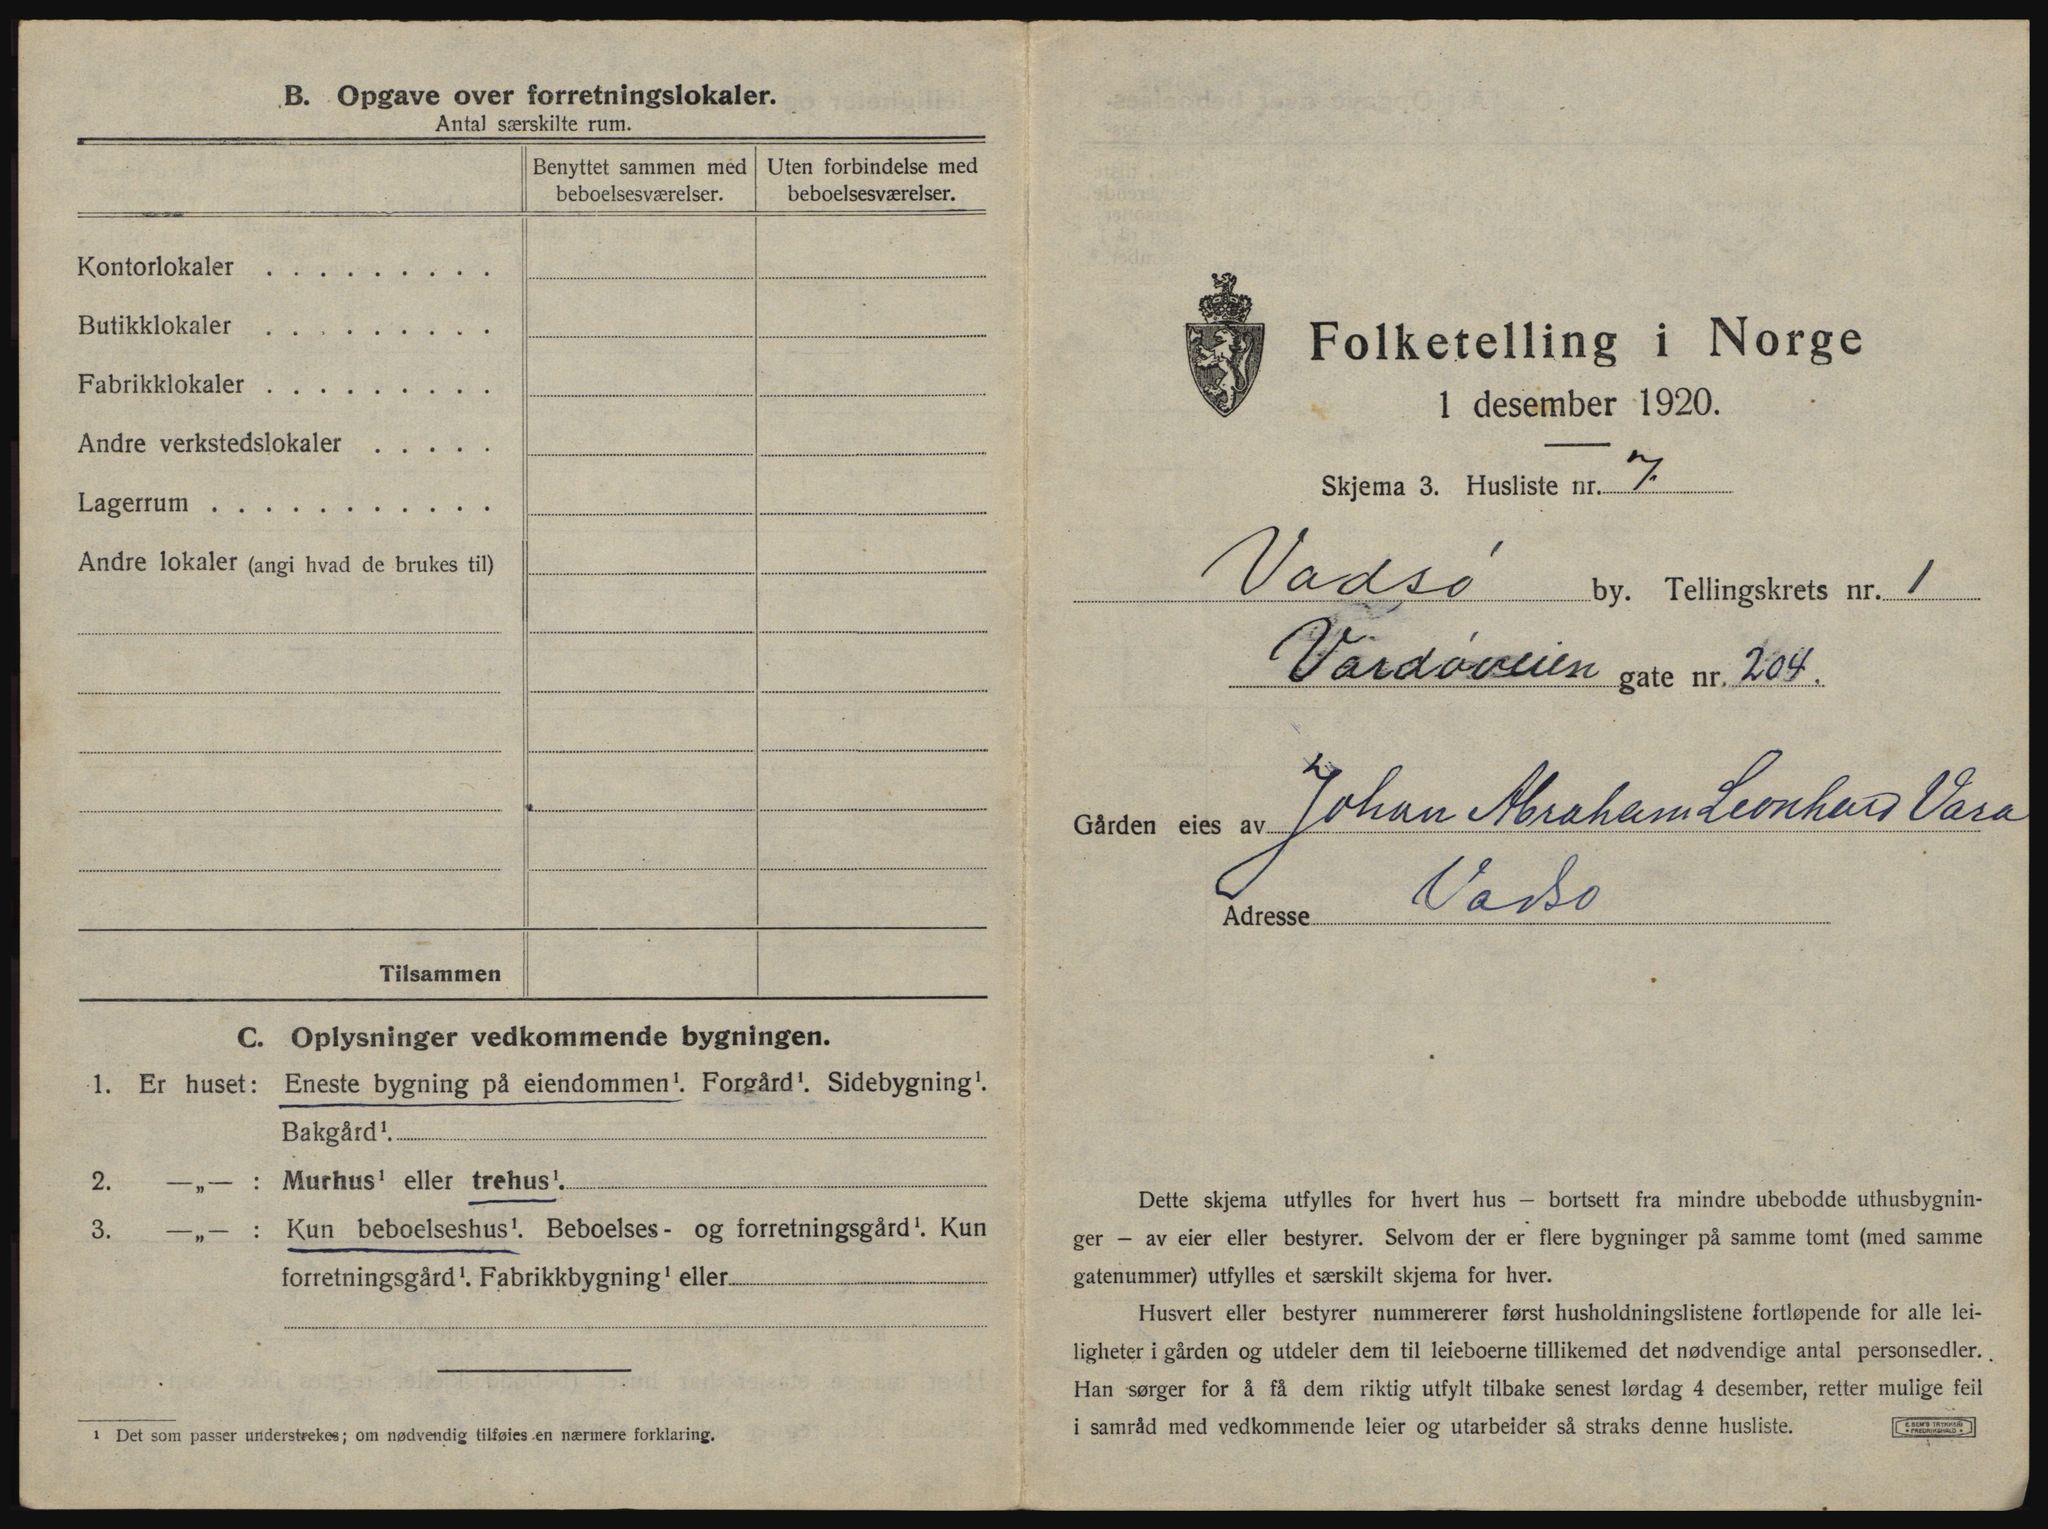 B. Opgave over forretningslokaler.
Antal særskilte rum.
Benyttet sammen med beboelsesværelser.
Uten forbindelse med beboelsesværelser.
Kontorlokaler . . . . . . . . .
Butikklokaler . . . . . . . . .
Fabrikklokaler . . . . . . . . .
Andre verkstedslokaler . . . . .
Lagerrum . . . . . . . . . . .
Andre lokaler (angi hvad de brukes til)
Tilsammen
C. Oplysninger vedkommende bygningen.
1. Er huset: Eneste bygning på eiendommen¹. Forgård¹. Sidebygning¹.
Bakgård¹.
2. —„— : Murhus¹ eller trehus¹.
3. —„— : Kun beboelseshus¹. Beboelses- og forretningsgård¹. Kun
forretningsgård¹. Fabrikkbygning¹ eller
¹ Det som passer understrekes; om nødvendig tilføies en nærmere forklaring.
Folketelling i Norge
1 desember 1920.
Skjema 3. Husliste nr. 7.
Vadsó by. Tellingskrets nr. 1
Vardóveien gate nr. 204.
Gården eies av Johan Abraham Leonhard Vara
Adresse Vadso
Dette skjema utfylles for hvert hus – bortsett fra mindre ubebodde uthusbygnin-
ger – av eier eller bestyrer. Selvom der er flere bygninger på samme tomt (med samme
gatenummer) utfylles et særskilt skjema for hver.
Husvert eller bestyrer nummererer først husholdningslistene fortløpende for alle lei-
ligheter i gården og utdeler dem til leieboerne tillikemed det nødvendige antal personsedler.
Han sørger for å få dem riktig utfylt tilbake senest lørdag 4 desember, retter mulige feil
i samråd med vedkommende leier og utarbeider så straks denne husliste.
E. SEM'S TRYKKERI
FREDRIKSHALD